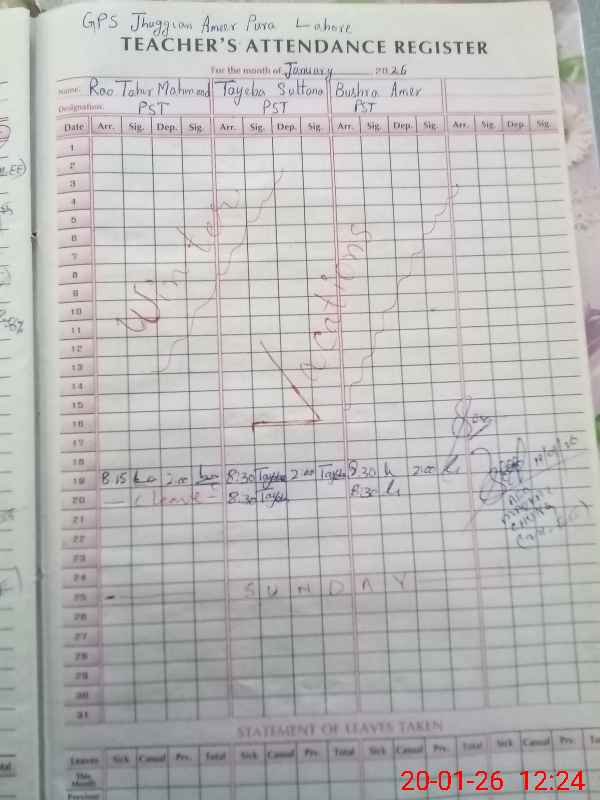 GPS Jhuggian Ameer Pura Lahore
TEACHER'S ATTENDANCE REGISTER
For the month of January 2026
Name: Rao Tahir Mahmood Tayeba Sultana Bushra Amer
Designation: PST PST PST
Date Arr. Sig. Dep. Sig. Arr. Sig. Dep. Sig. Arr. Sig. Dep. Sig. Arr. Sig. Dep. Sig.
1
2
3
4
5
6
7
8
9
10
11
12
13
14
15
16
17
18
Winter Vacations
19 8:15 2:00 8:30 2:00 8:30 2:00
20 Leave 8:30 8:30
21
22
23
24
25 SUNDAY
26
27
28
29
30
31
STATEMENT OF LEAVES TAKEN
Leaves Sick Casual Prv. Total Sick Casual Prv. Total Sick Casual Prv. Total Sick Casual Prv.
This Month
Previous
20-01-26 12:24